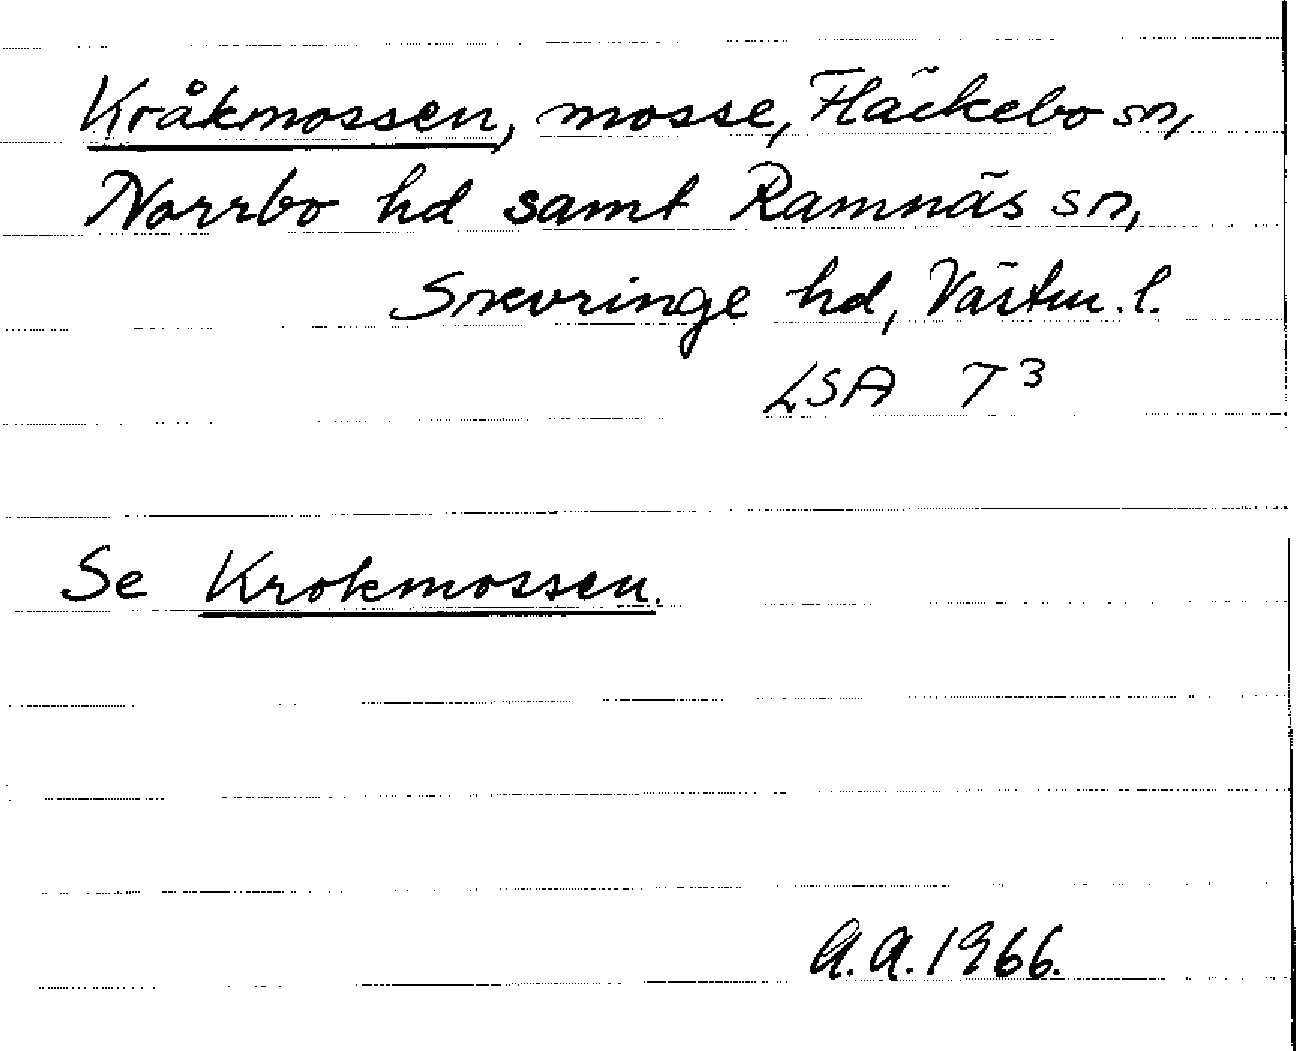 Kråkmossen, mosse, Fläckebo sn,
Norrbo hd samt Ramnäs sn,
Snevringe hd, Västm. l.
LSA T3
Se Krokmossen.
A.A. 1966.